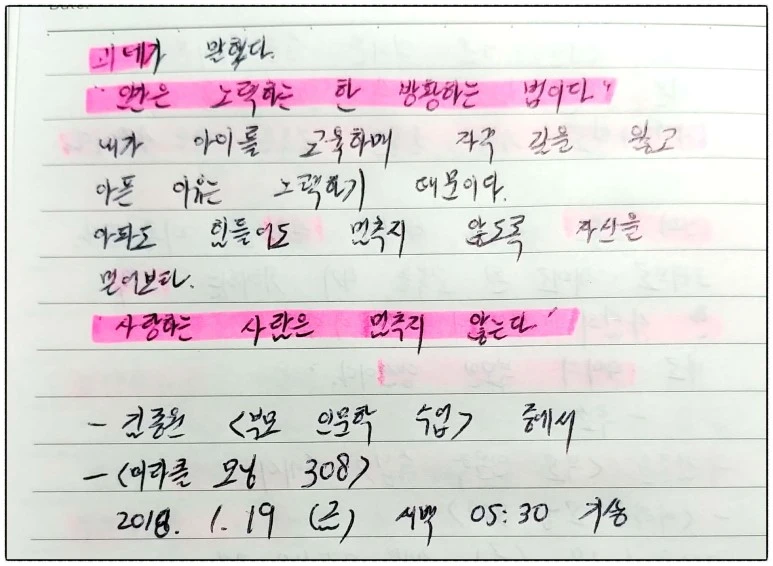 괴테가 말했다.
"인간은 노력하는 한 방황하는 법이다."
내가 아이를 교육하며 자꾸 길을 잃고
아픈 이유는 노력하기 때문이다.
아파도 힘들어도 멈추지 않도록 자신을
믿어보다.
"사랑하는 사람은 멈추지 않는다."
- 김종원 <부모 인문학 수업> 중에서
- <미라클 모닝 308>
2018. 1. 19 (금) 새벽 05:30 기송